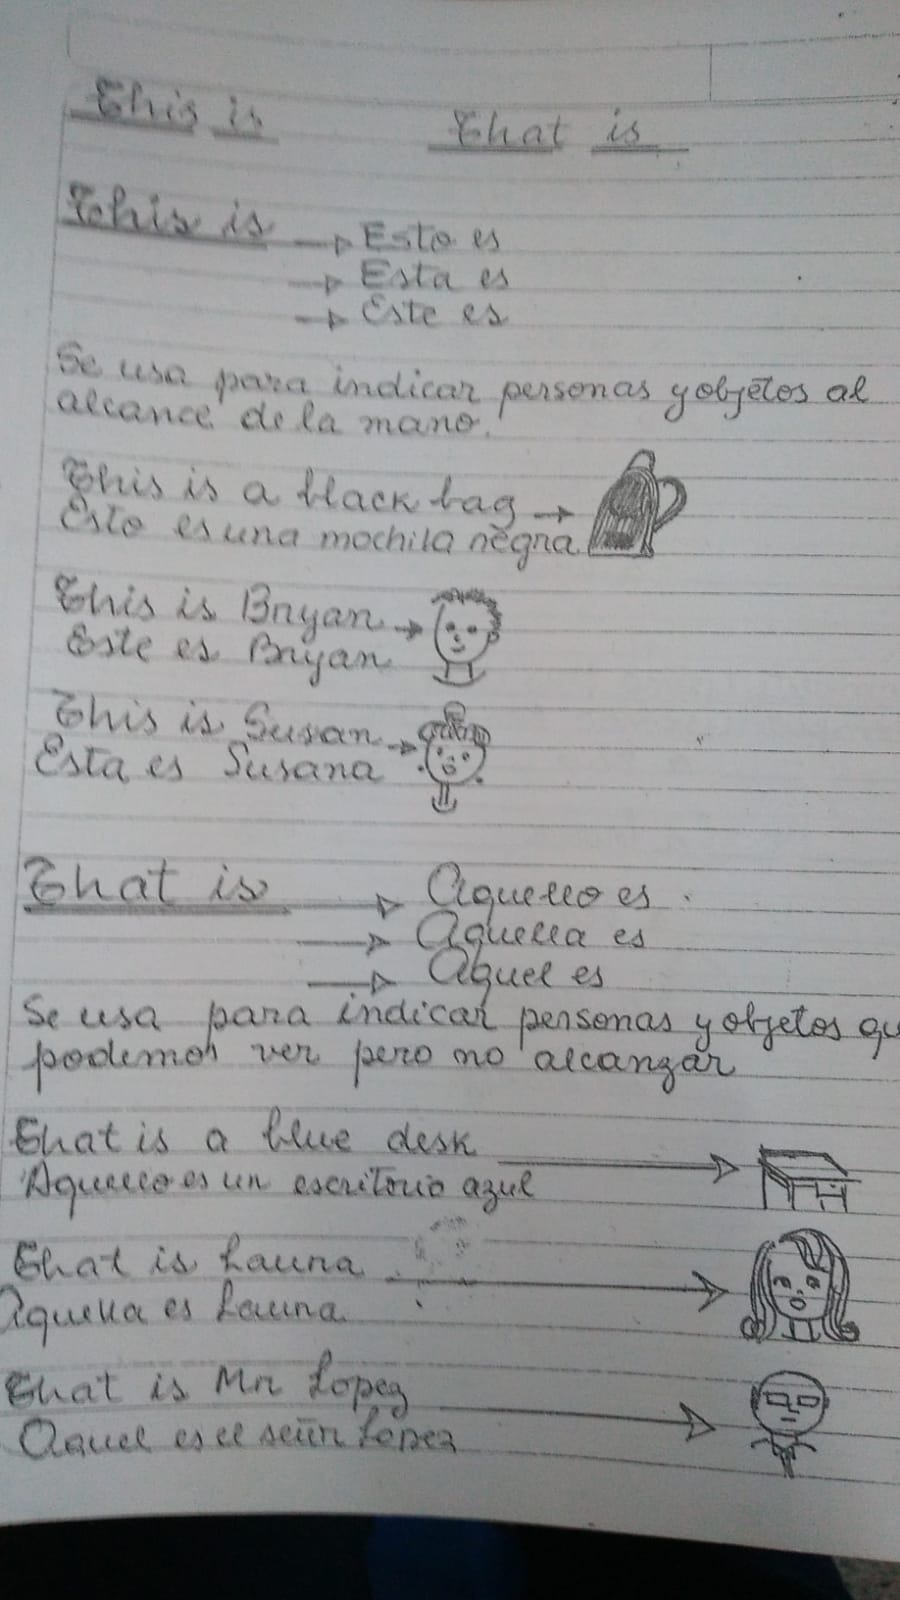 This is That is
This is → Esto es
→ Esta es
→ Este es
Se usa para indicar personas y objetos al
alcance de la mano.
This is a black bag →
Esto es una mochila negra
This is Bryan →
Este es Bryan
This is Susan →
Esta es Susana
That is → Aquello es
→ Aquella es
→ Aquel es
Se usa para indicar personas y objetos qu
podemos ver pero no alcanzar
That is a blue desk →
Aquello es un escritorio azul
That is Laura →
Aquella es Laura
That is Mr Lopez →
Aquel es el señor Lopez